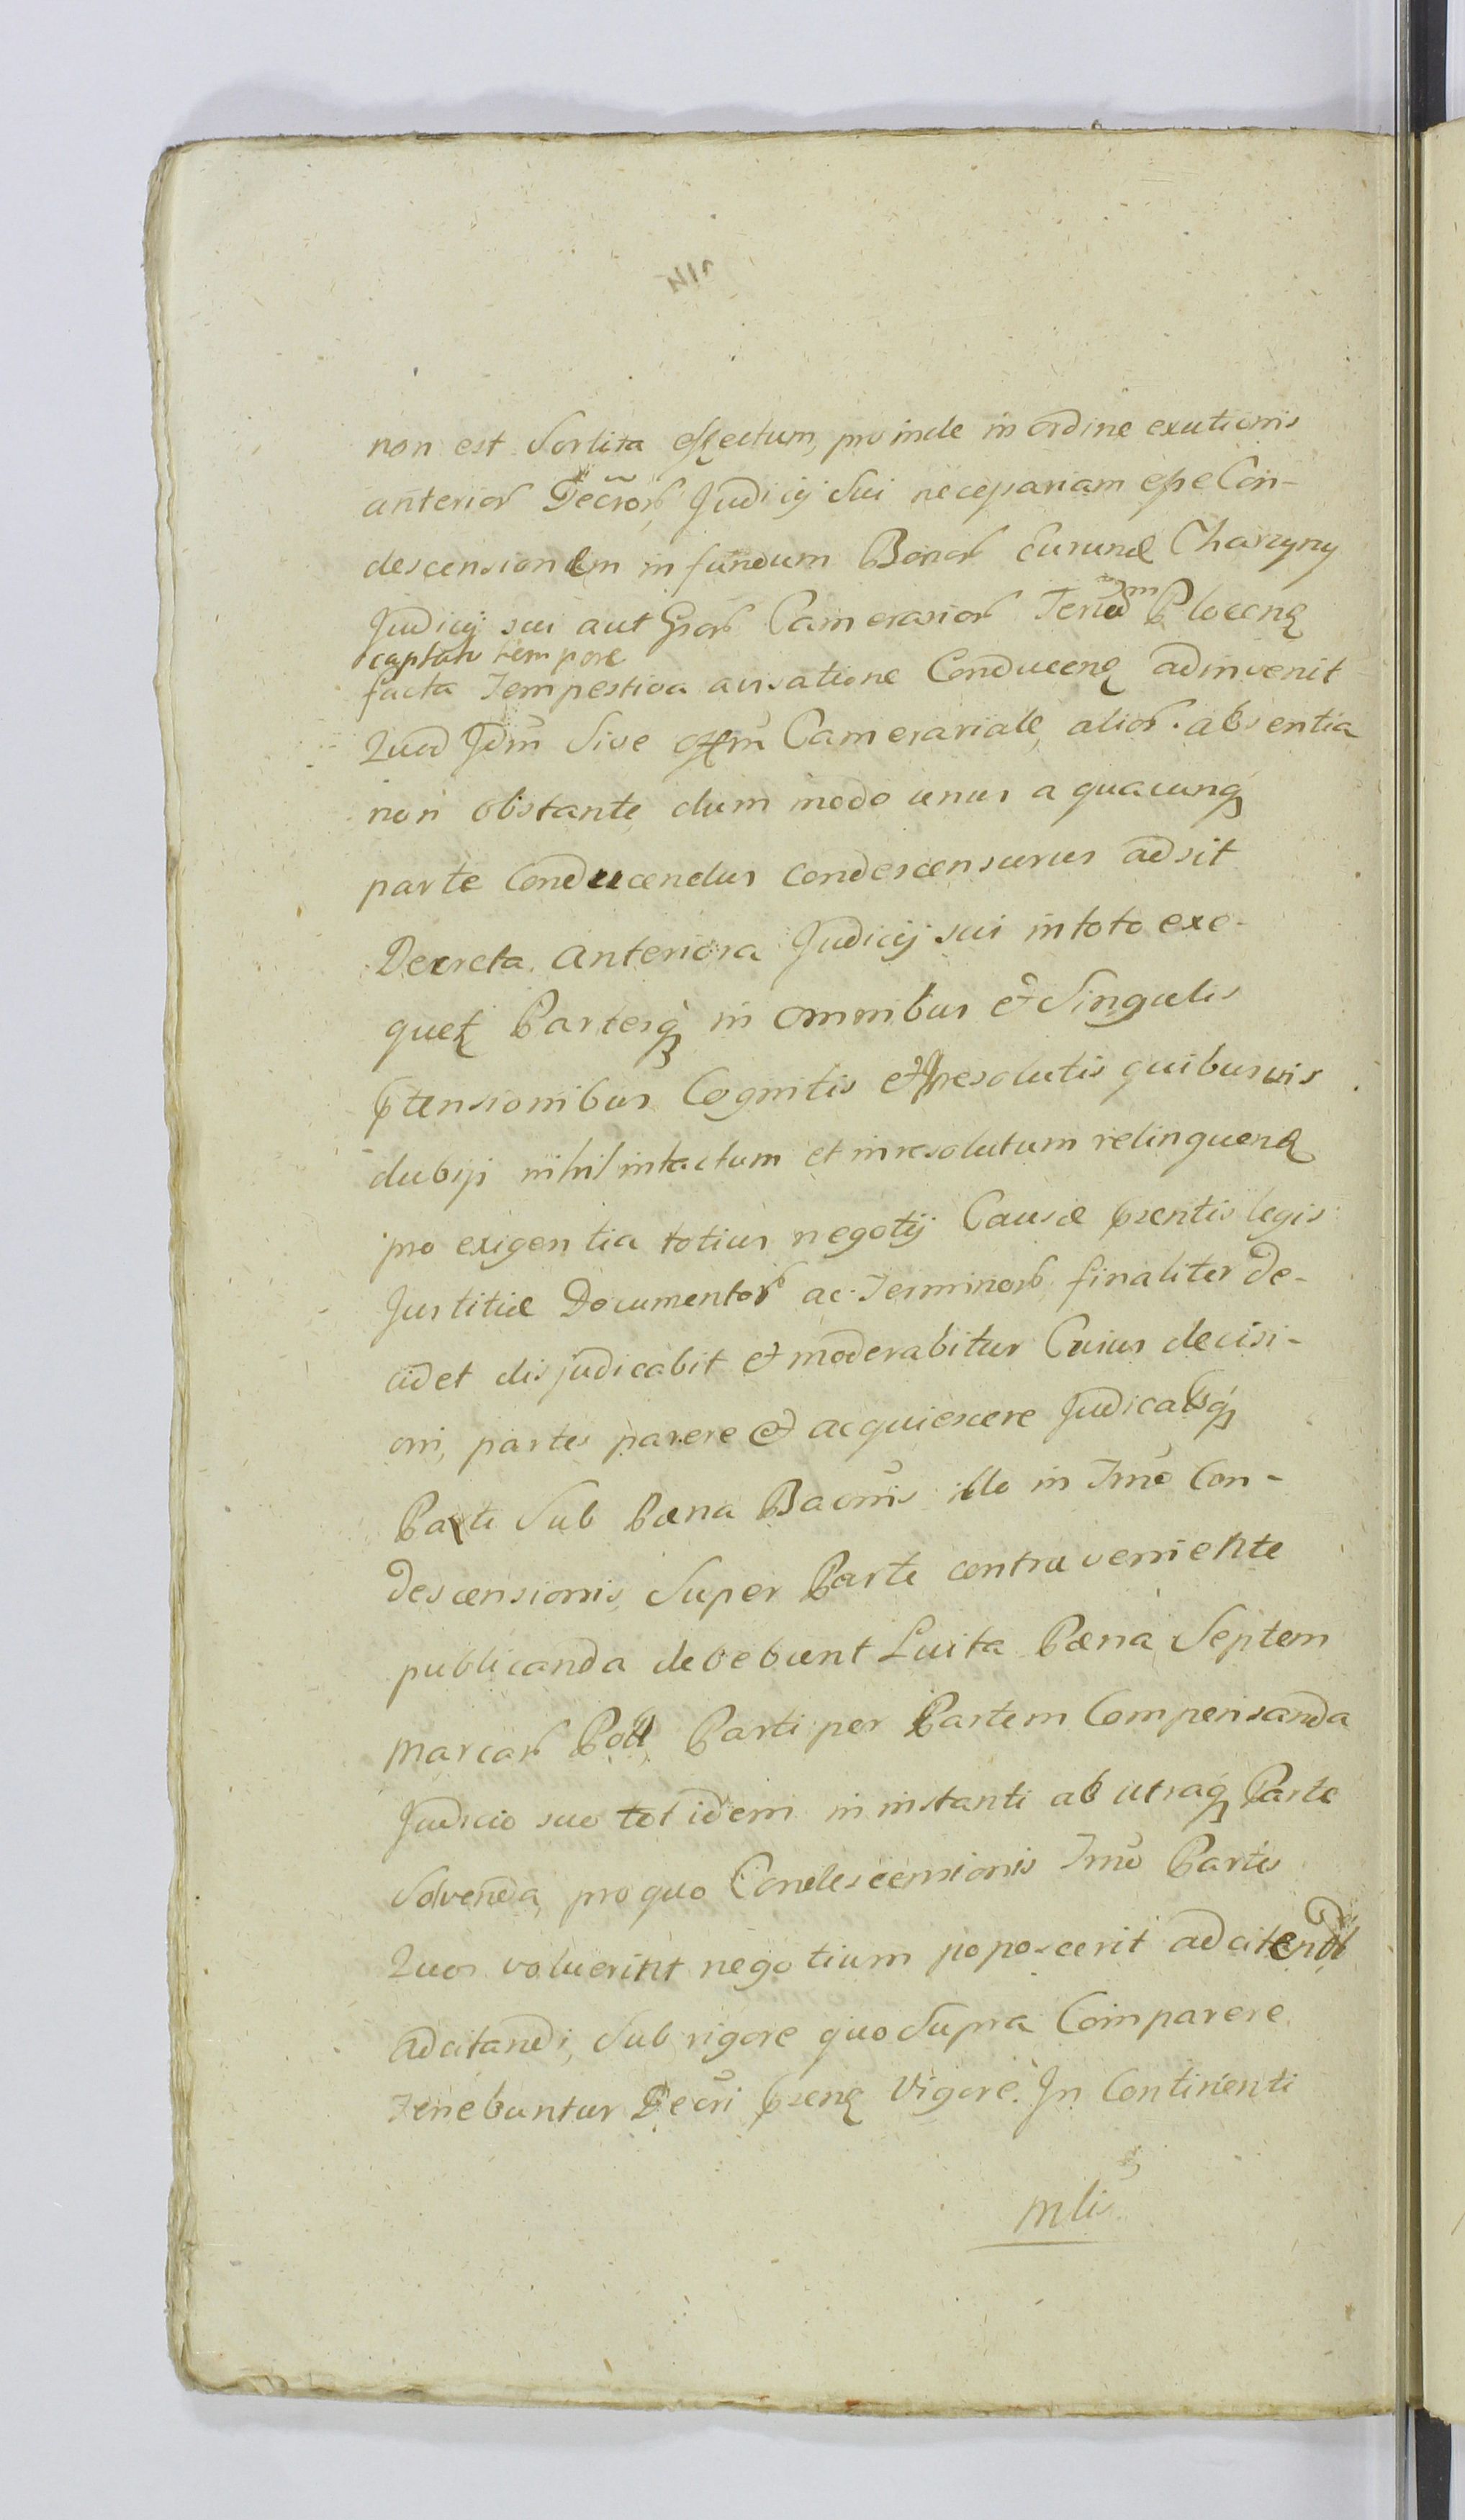 non est Sortita effectum, proinde in ordine exutionis
anterior Decror Judicij Sui necessariam esse Con-
descensionem in fundum Bonor Eurund Charzyny
Judicij sui aut Gror Camerarior Terrarum Plocen
captato tempore
facta Tempestiva avisatione Conducen adinvenit
Quod Jdm Sive offm Camerariale, alior absentia
non obstante, dum modo unus a quacunq
parte Conducendus condescensurus adsit
Decreta Anteriora Judicij sui in toto exe-
quet Partesq in omnibus et Singulis
ptensionibus Cognitis et resolutis quibusvis
dubijs nihil intactum et inresolutum relinquen
pro exigentia totius negotij Causæ psentis legis
Justitiæ Documentor ac Terminor finaliter de-
cidet disjudicabit et moderabitur Cuius decisi-
oni, partes parere et acquiescere Judicatsq
Parti Sub Pæna Baonis illo in Tmo Con-
descensionis Super Parte contraveniente
publicanda debebunt Luita Pæna Septem
Marcar Poll Parti per Partem Compensanda
Judicio suo totidem in instanti ab utraq Parte
Solvenda, pro quo Condescensionis Tmo Partes
Quos voluerint negotium poposcerit adcitand
adcitandi, Sub rigore quo Supra Comparere
Tenebuntur Decri psen Vigore. In Continenti
Mli